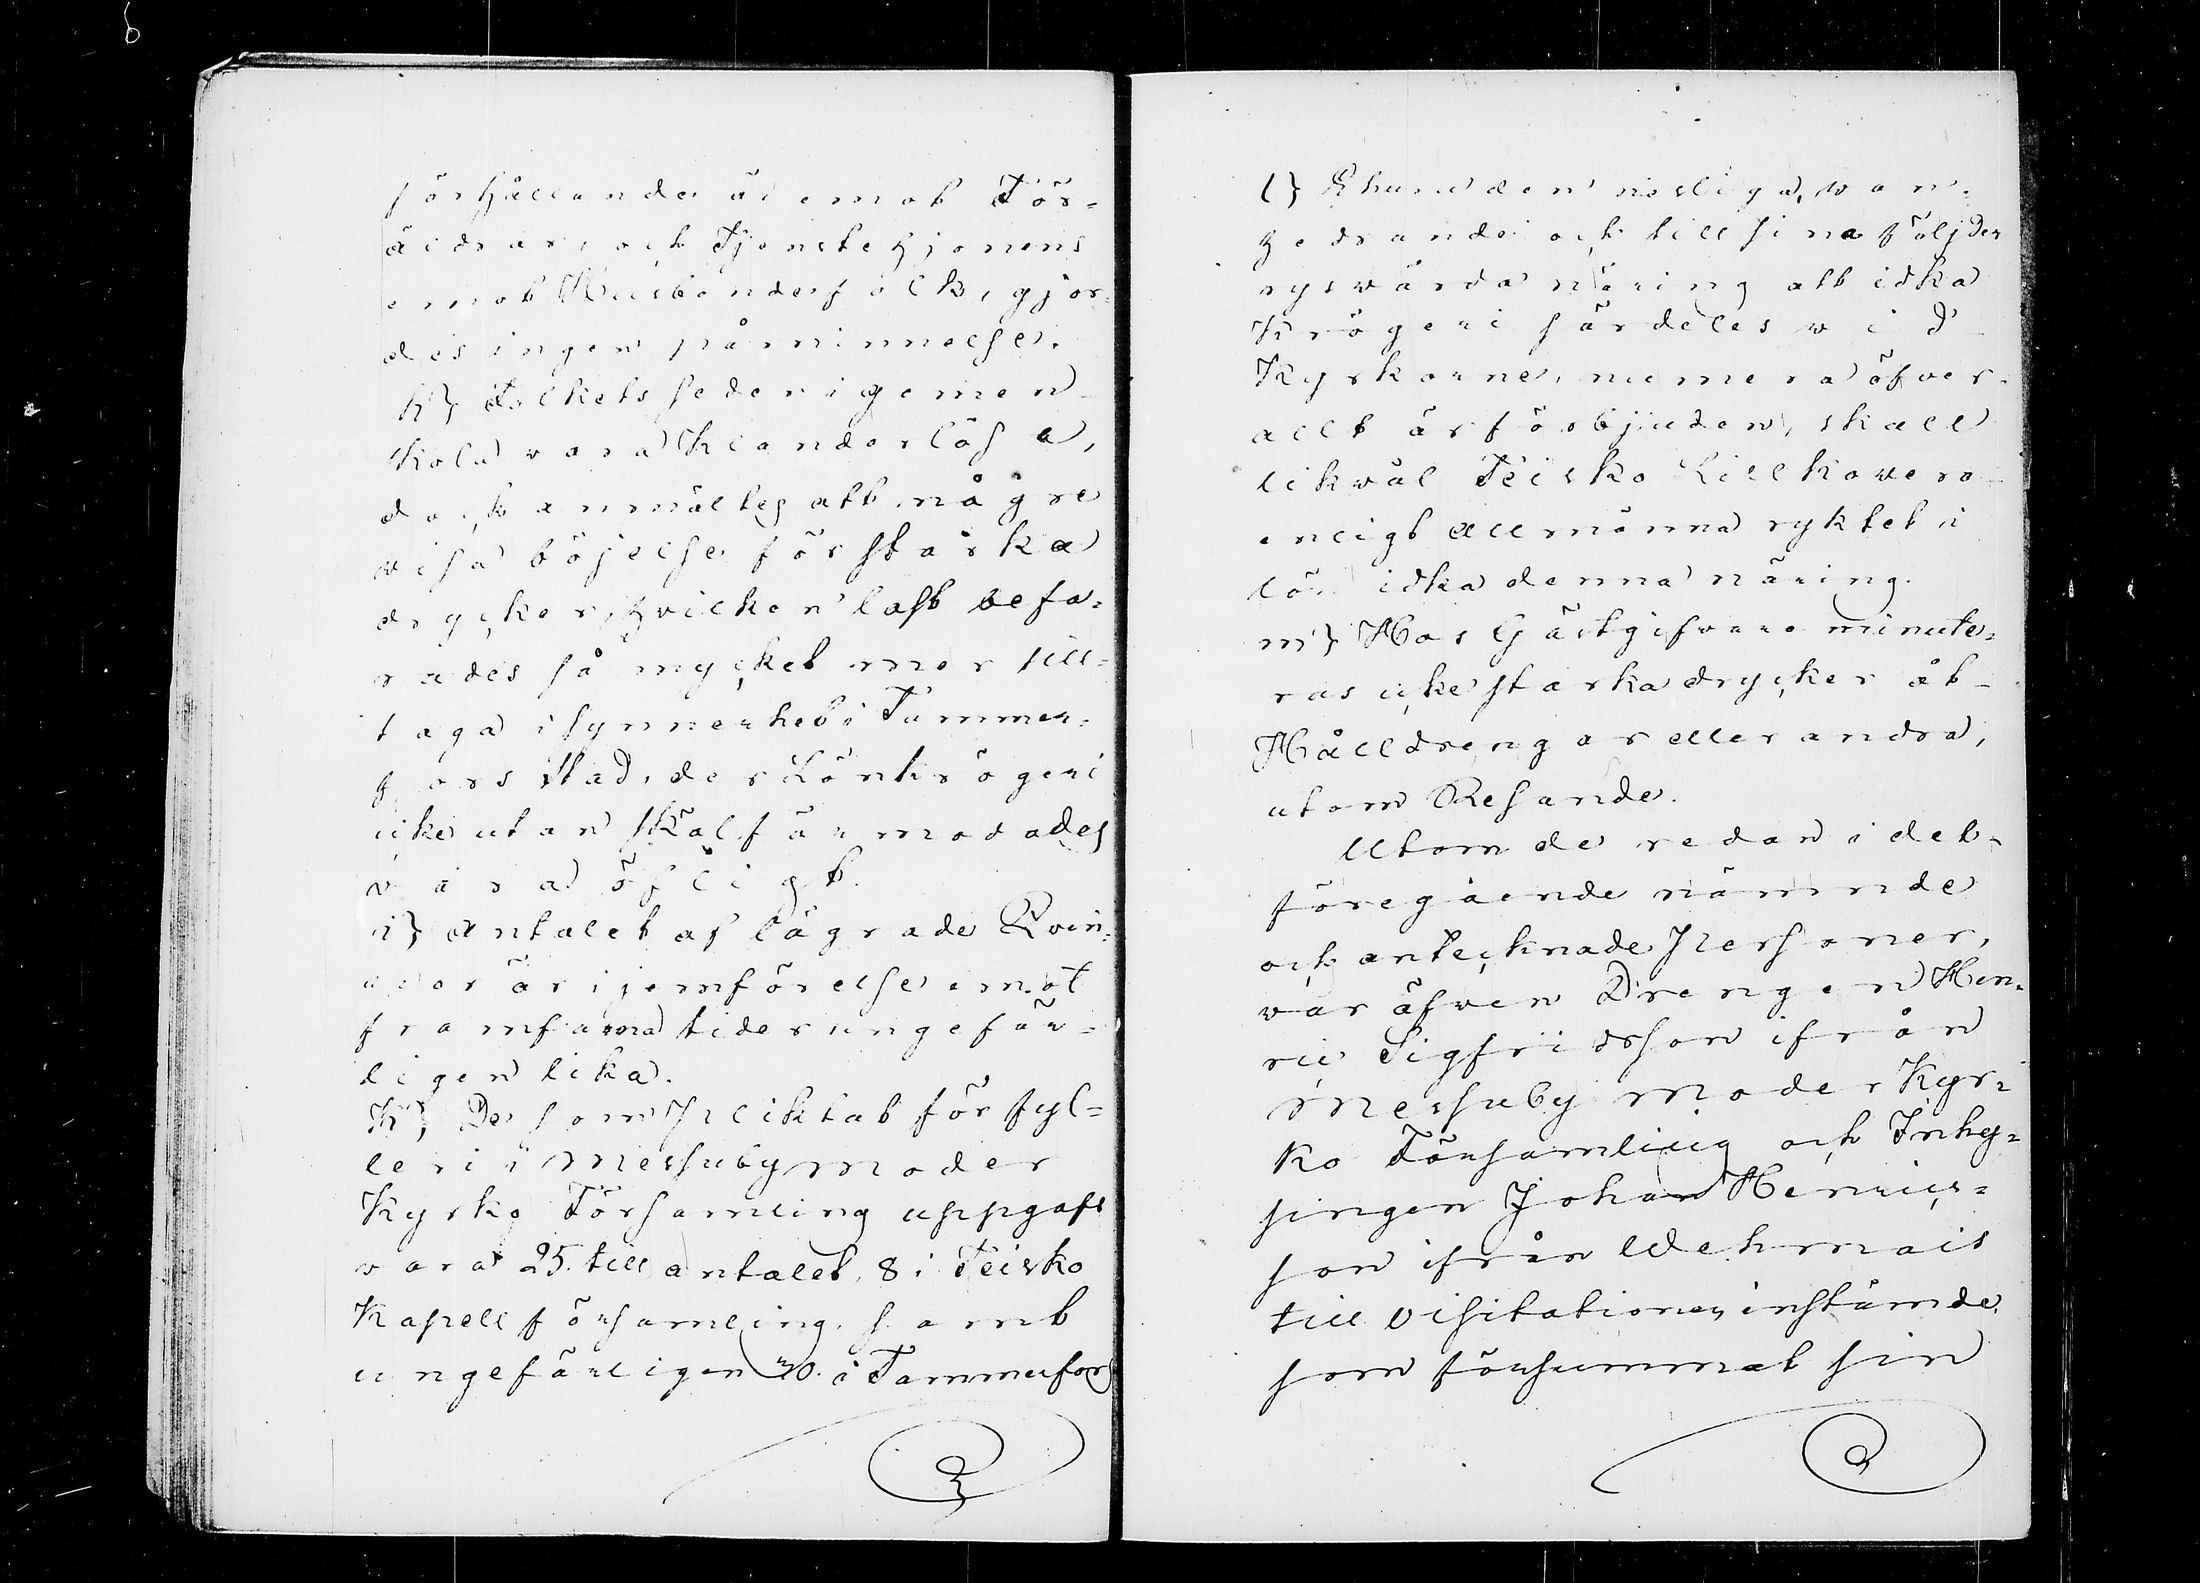 förhållande äi emot För-
äldrar, och Tjenstehjonens
emot Husbondefolk, gjor-
des ingen påminnelse.
h) Folkets seder i gemen
skola vara klanderlösa,
dock anmältes att någre
visa böjelse för starka
drycker, hvilken last befa-
rades så mycket mer till-
taga i synnerhet i Tammer-
fors stad, der Lönkrögeri
icke utan skäl förmodades
vara öfligt.
i) Antalet af lägrade Qvin-
nor är i jemförelse emot
framfarna tider ungefär-
ligen lika.
K) De som pliktat för fyl-
leri i Messuby moder
Kyrko Församling uppgafs
vara 25 till antalet, 8 i Teisko
Kapell församling, samt
ungefärligen 20. i Tammerfors
l) Ehuru den nesliga, van-
hedrande och till sina följder
rysvärda näring att idka
Krögeri särdeles vid
Kyrkorne, numera öfver-
allt är förbjuden, skall
likväl Teisko Lillkovero
enligt allmänna ryktet i
lön idka denna näring.
m) Hos Gästgifvare minute-
ras icke starka drycker åt
Hålldrengar eller andra,
utom Resande.
Utom de redan i det
föregående nämnde
och antecknade Personer,
var äfven Drengen Hen-
ric Sigfridsson ifrån
Messuby Moder Kyr-
ko Församling och Inhy-
singen Johan Henrics-
son ifrån Wehmais
till Visitationen instämde
som försummat sin